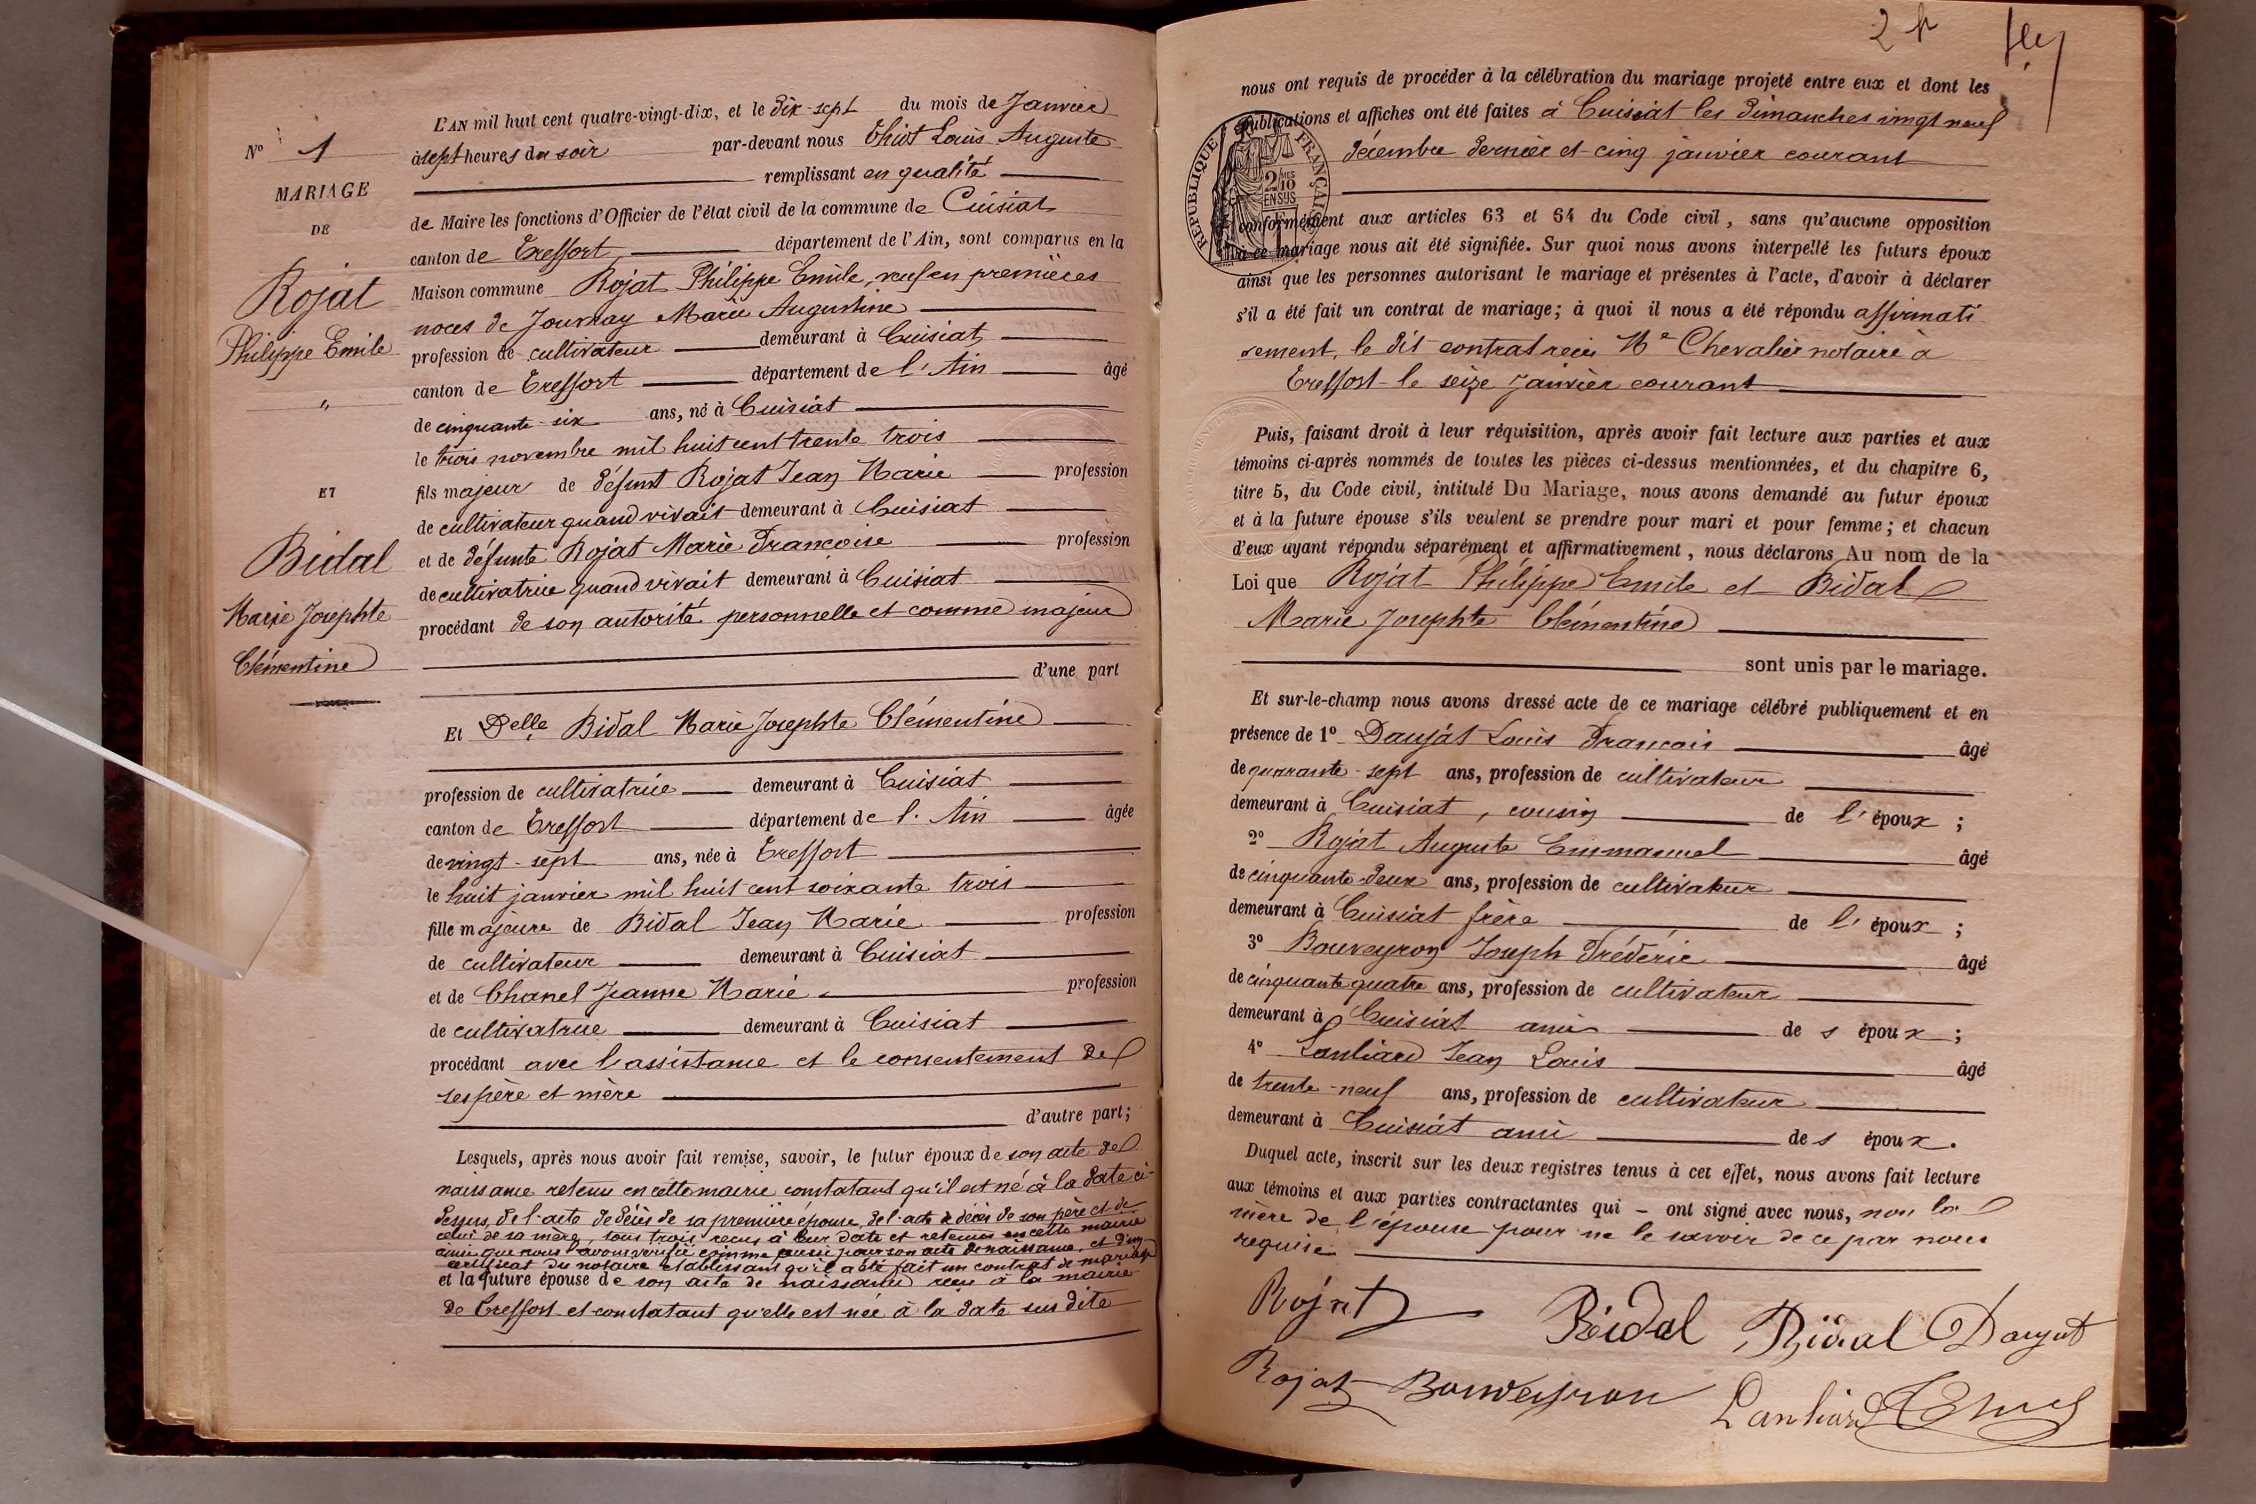 L'AN mil huit cent quatre-vingt-dix, et le dix-sept du mois de Janvier
N° 1
à sept heures du soir par-devant nous Thiot Louis Auguste
remplissant en qualité
MARIAGE
de Maire les fonctions d'Officier de l'état civil de la commune de Cuisiat
DE
canton de Treffort département de l'Ain, sont comparus en la
Rojat
Philippe Emile
"
Maison commune Rojat Philippe Emile, veuf en premières
noces de Journay Marie Augustine
profession de cultivateur demeurant à Cuisiat
canton de Treffort département de l'Ain âgé
de cinquante-six ans, né à Cuisiat
le trois novembre mil huit cent trente trois
fils majeur de défunt Rojat Jean Marie profession
ET
de cultivateur quand vivait demeurant à Cuisiat
et de défunte Rojat Marie Françoise profession
Bidal
Marie Josephte
Clémentine
de cultivatrice quand vivait demeurant à Cuisiat
procédant de son autorité personnelle et comme majeur
d'une part
Et Delle Bidal Marie Josephte Clémentine
profession de cultivatrice demeurant à Cuisiat
canton de Treffort département de l'Ain âgée
de vingt-sept ans, née à Treffort
le huit janvier mil huit cent soixante trois
fille majeure de Bidal Jean Marie profession
de cultivateur demeurant à Cuisiat
et de Chanel Jeanne Marie profession
de cultivatrice demeurant à Cuisiat
procédant avec l'assistance et le consentement de
ses père et mère
d'autre part;
Lesquels, après nous avoir fait remise, savoir, le futur époux de son acte de
naissance retenu en cette mairie constatant qu'il est né à la date ci-
dessus, de l'acte de décès de sa première épouse, de l'acte de décès de son père et de
celui de sa mère, tous trois reçus à leur date et retenus en cette mairie
ainsi que nous l'avons vérifié comme aussi pour son acte de naissance, et d'un
certificat du notaire établissant qu'il a été fait un contrat de mariage
et la future épouse de son acte de naissance reçu à la mairie
de Treffort et constatant qu'elle est née à la date sus dite
2
nous ont requis de procéder à la célébration du mariage projeté entre eux et dont les
publications et affiches ont été faites à Cuisiat les dimanches vingt neuf
décembre dernier et cinq janvier courant
REPUBLIQUE FRANÇAISE
2 MES
10
EN SUS
conformément aux articles 63 et 64 du Code civil, sans qu'aucune opposition
à ce mariage nous ait été signifiée. Sur quoi nous avons interpellé les futurs époux
ainsi que les personnes autorisant le mariage et présentes à l'acte, d'avoir à déclarer
s'il a été fait un contrat de mariage; à quoi il nous a été répondu affirmati
vement, le dit contrat reçu Me Chevalier notaire à
Treffort le seize janvier courant
Puis, faisant droit à leur réquisition, après avoir fait lecture aux parties et aux
témoins ci-après nommés de toutes les pièces ci-dessus mentionnées, et du chapitre 6,
titre 5, du Code civil, intitulé Du Mariage, nous avons demandé au futur époux
et à la future épouse s'ils veulent se prendre pour mari et pour femme; et chacun
d'eux ayant répondu séparément et affirmativement, nous déclarons Au nom de la
Loi que Rojat Philippe Emile et Bidal
Marie Josephte Clémentine
sont unis par le mariage.
Et sur-le-champ nous avons dressé acte de ce mariage célébré publiquement et en
présence de 1° Daujat Louis François âgé
de quarante-sept ans, profession de cultivateur
demeurant à Cuisiat, cousin de l'époux;
2° Rojat Auguste Emmanuel âgé
de cinquante-deux ans, profession de cultivateur
demeurant à Cuisiat frère de l'époux;
3° Bouveyron Joseph Frédéric âgé
de cinquante quatre ans, profession de cultivateur
demeurant à Cuisiat ami des époux;
4° Lanliard Jean Louis âgé
de trente-neuf ans, profession de cultivateur
demeurant à Cuisiat ami des époux.
Duquel acte, inscrit sur les deux registres tenus à cet effet, nous avons fait lecture
aux témoins et aux parties contractantes qui - ont signé avec nous, non la
mère de l'épouse pour ne le savoir de ce par nous
requise
Rojat Bidal Bidal Daujat
Rojat Bouveyron Lanliard